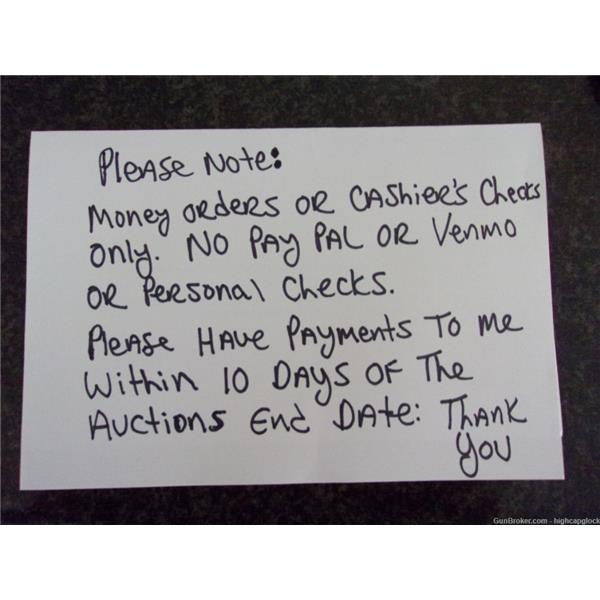 Please Note:
Money orders or Cashier's Checks
only. No Pay Pal or Venmo
or Personal Checks.
Please Have Payments To me
Within 10 Days of The
Auctions End Date: Thank
You
GunBroker.com - highcapglock